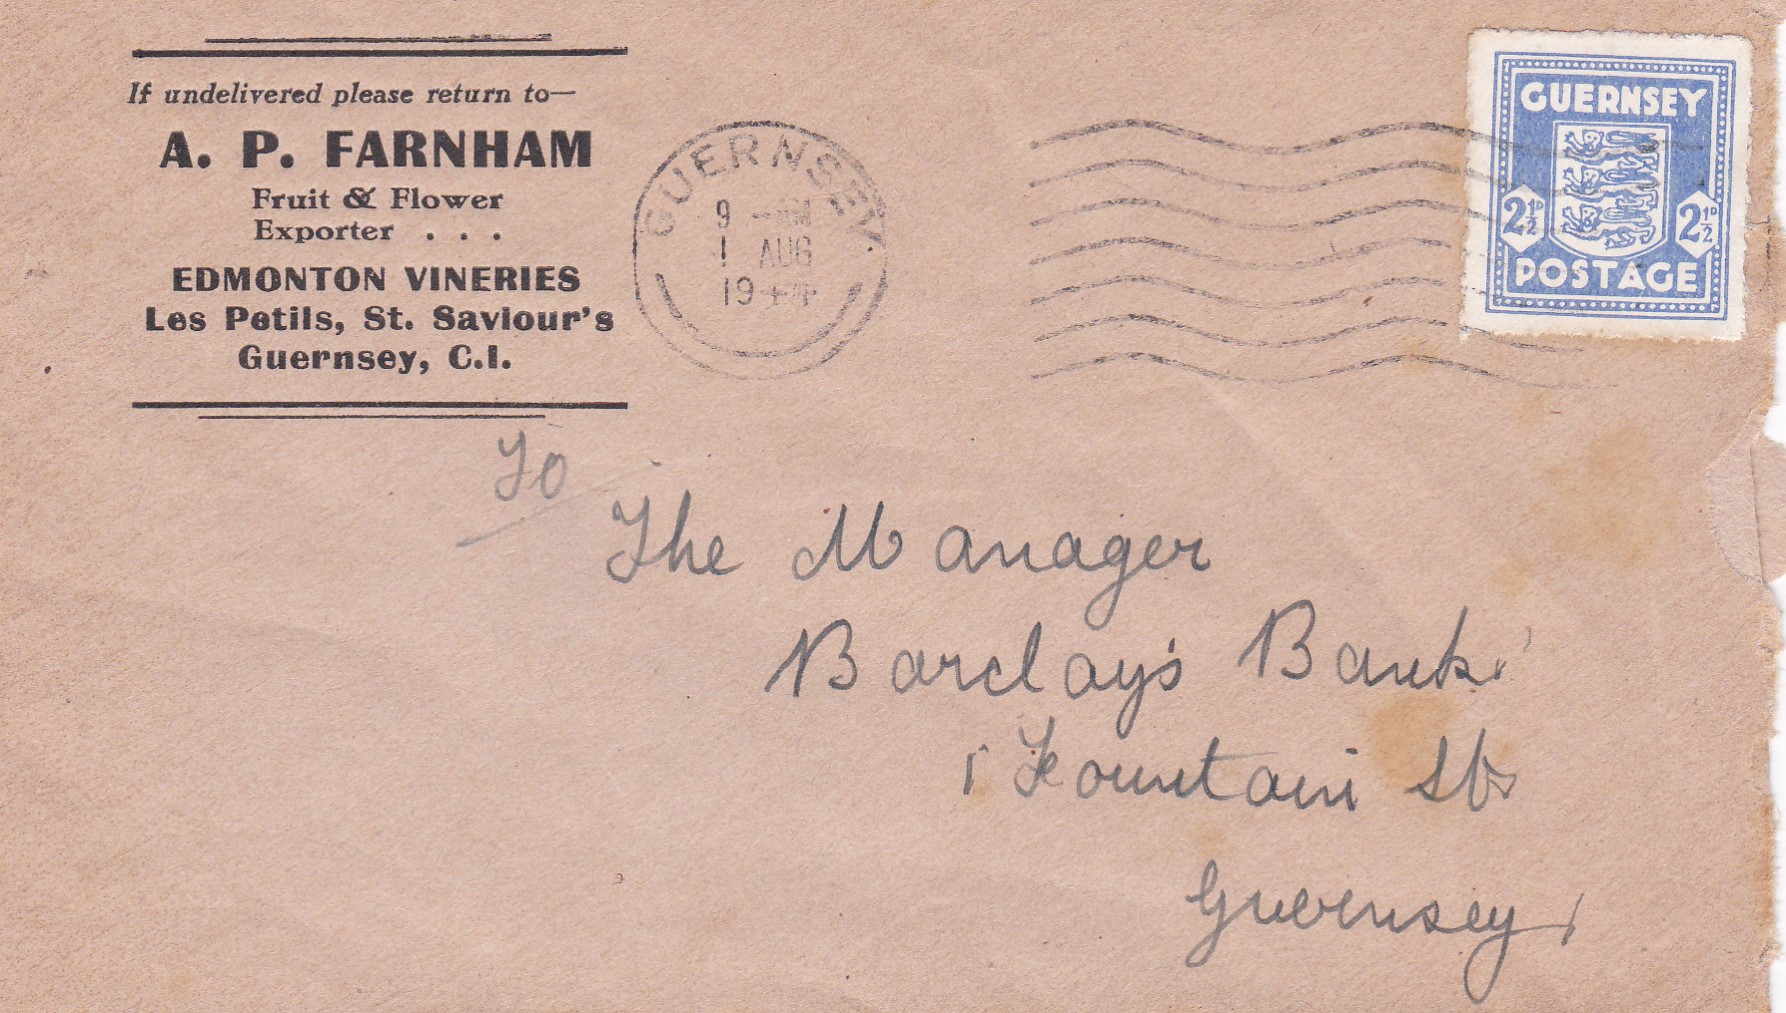 If undelivered please return to—
A. P. FARNHAM
Fruit & Flower
Exporter . . .
EDMONTON VINERIES
Les Petils, St. Saviour's
Guernsey, C.I.
GUERNSEY
9 - AM
1 AUG
1944
GUERNSEY
2½D 2½D
POSTAGE
To
The Manager
Barclay's Bank
1 Fountain St
Guernsey